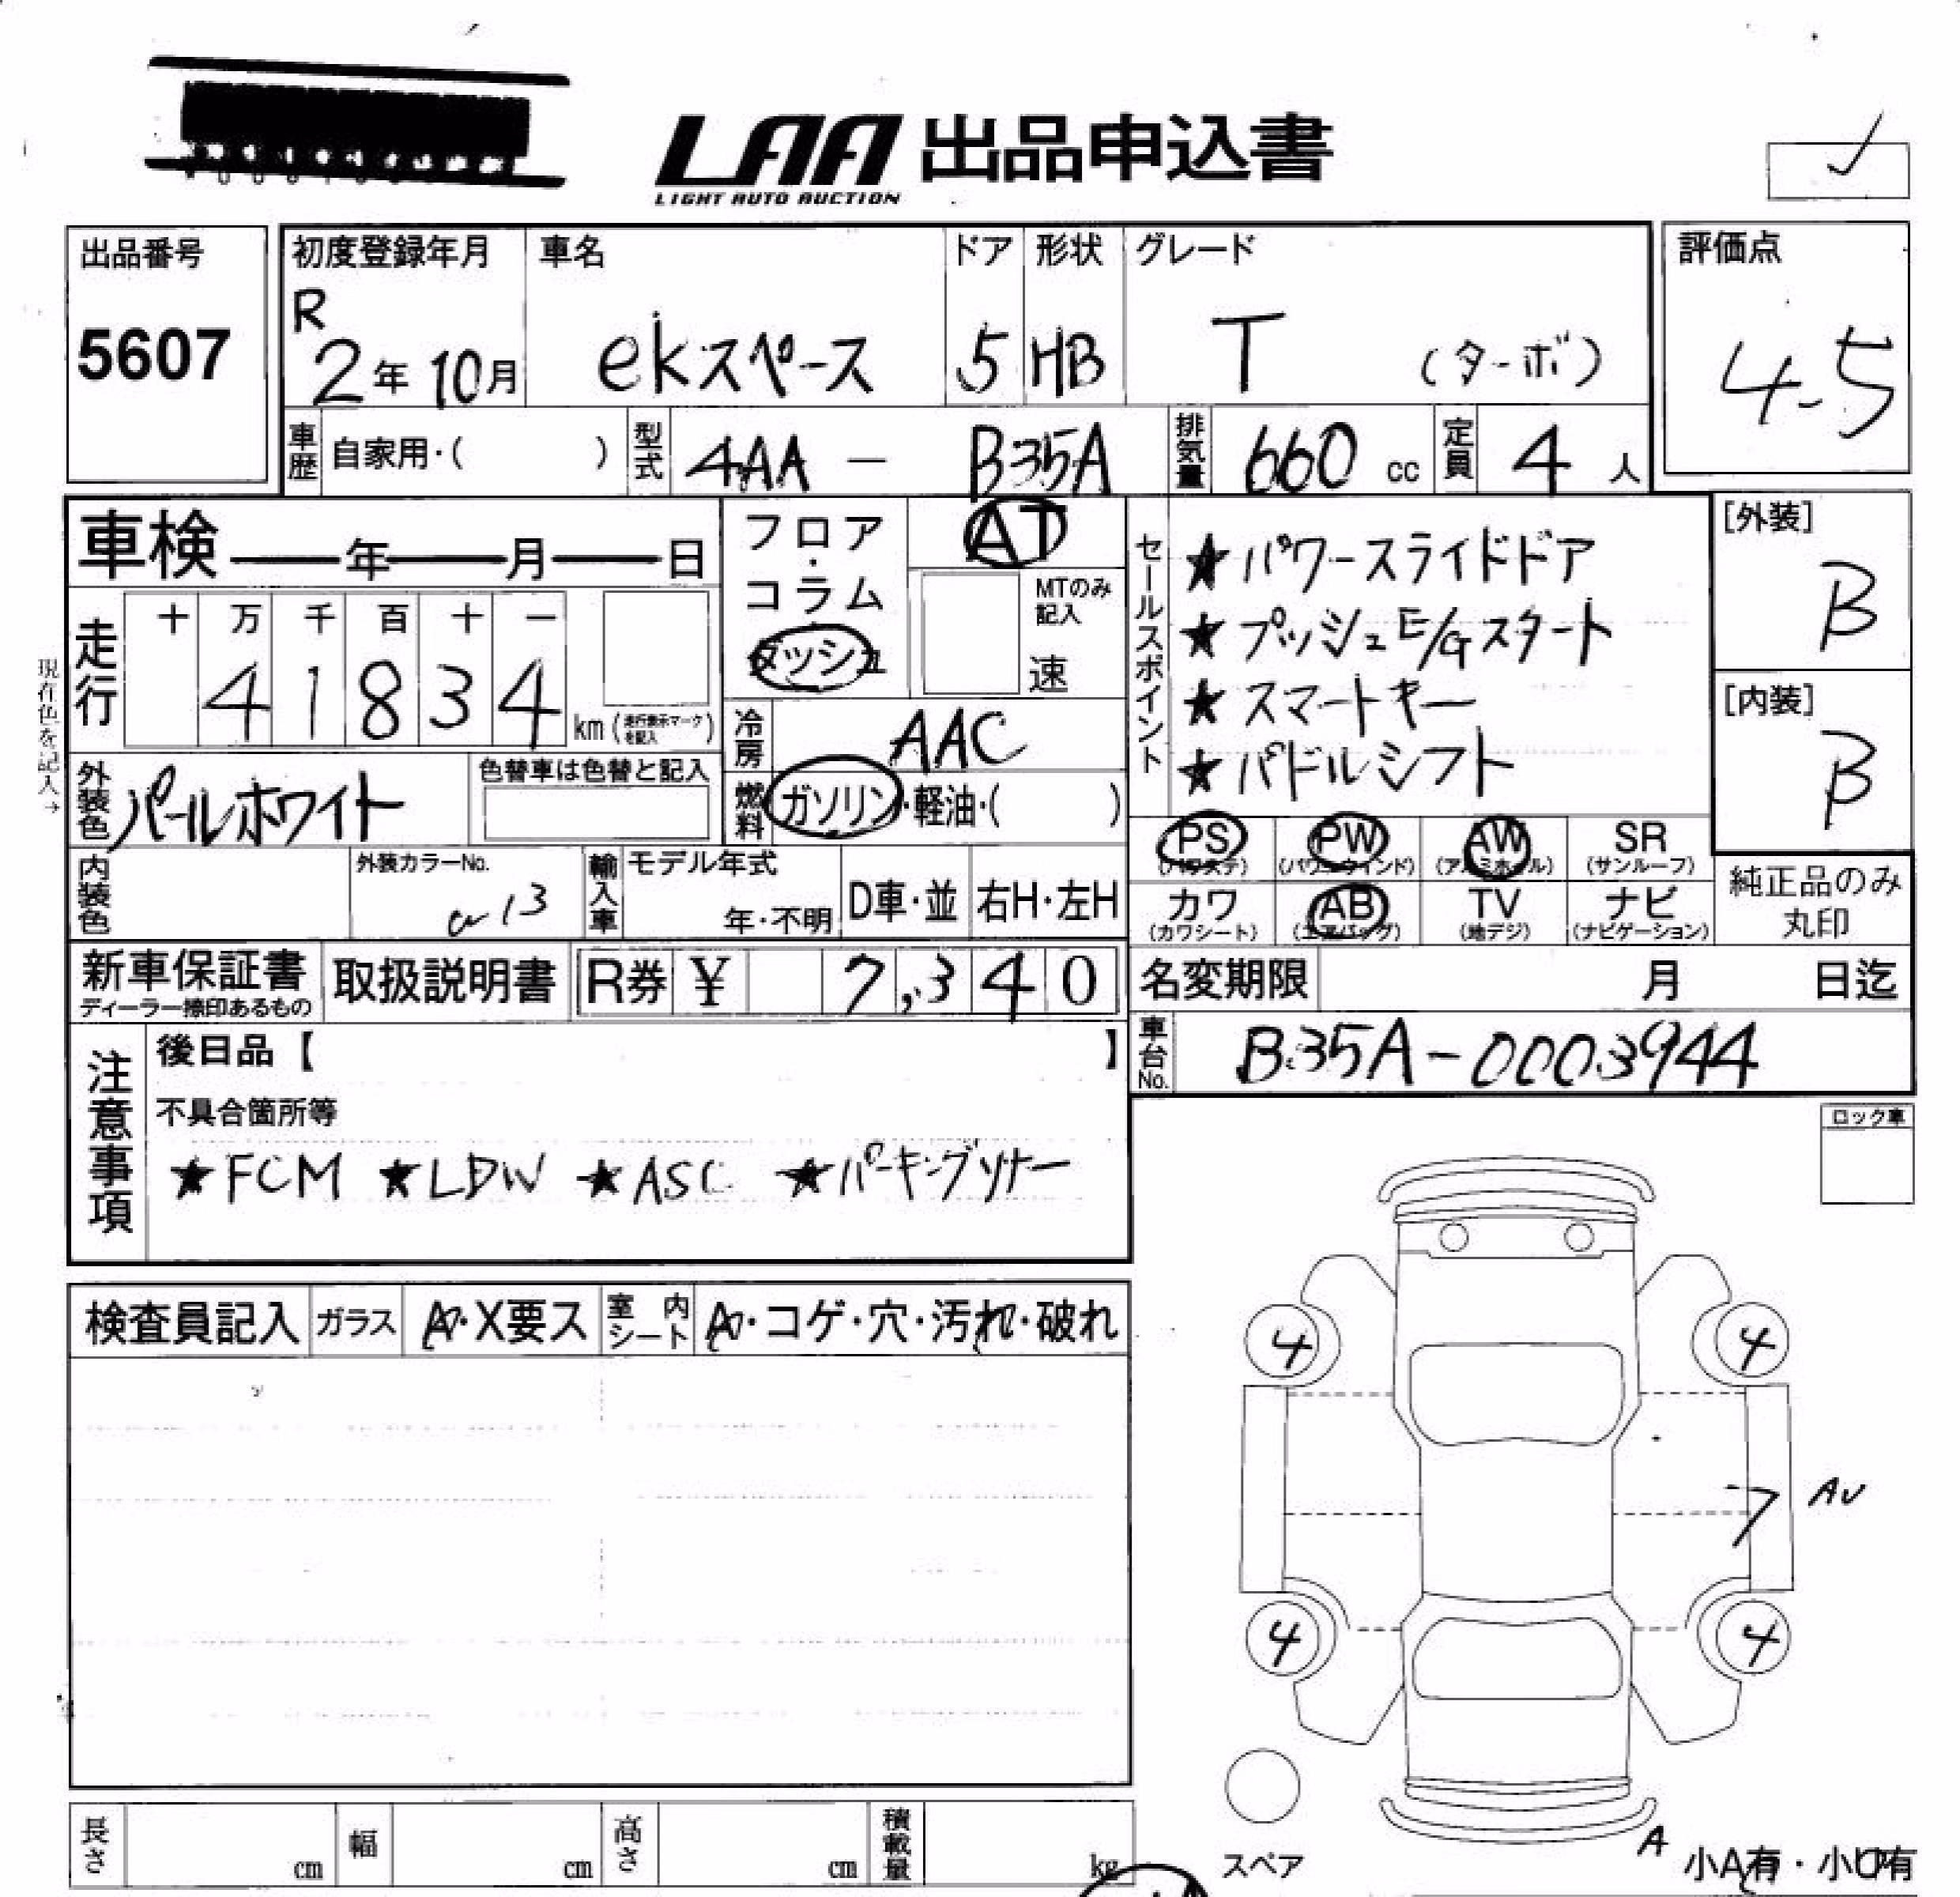 LAA 出品申込書
LIGHT AUTO AUCTION
出品番号
5607
初度登録年月
R
2年10月
車名
ekスペース
ドア
5
形状
HB
グレード
T (ターボ)
評価点
4.5
車歴 自家用・( )
型式 4AA - B35A
排気量 660 cc
定員 4 人
車検 ― 年 ― 月 ― 日
フロア・コラム
ダッシュ
AT
MTのみ記入
速
セールスポイント
★パワースライドドア
★プッシュE/Gスタート
★スマートキー
★パドルシフト
[外装]
B
[内装]
B
現在色を記入→
走行
十 万 千 百 十 一
41834 km (走行表示マークを記入)
冷房 AAC
燃料 ガソリン・軽油・( )
外装色 パールホワイト
色替車は色替と記入
内装色
外装カラーNo.
W13
輸入車 モデル年式
年・不明
D車・並
右H・左H
PS (パワステ)
PW (パワーウィンド)
AW (アルミホイル)
SR (サンルーフ)
カワ (カワシート)
AB (エアバッグ)
TV (地デジ)
ナビ (ナビゲーション)
純正品のみ
丸印
新車保証書
ディーラー捺印あるもの
取扱説明書
R券 ¥ 7,340
名変期限 月 日迄
車台No. B35A-0003944
注意事項
後日品【 】
不具合箇所等
★FCM ★LDW ★ASC ★パーキングソナー
ロック車
検査員記入
ガラス A・X要ス
室内シート A・コゲ・穴・汚れ・破れ
4
4
7 AU
4
4
スペア
A
小A有・小U有
長さ cm
幅 cm
高さ cm
積載量 kg